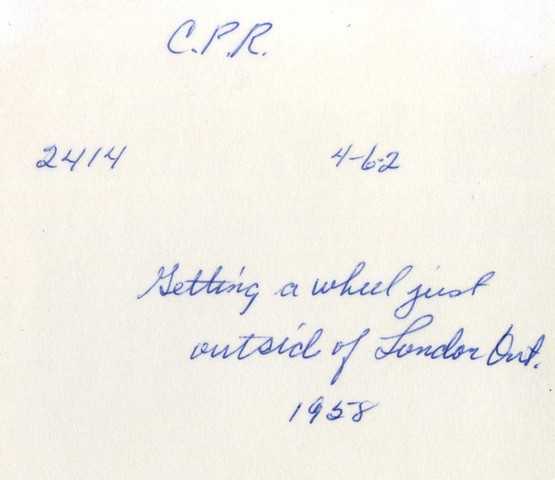 C.P.R.
2414 4-6-2
Getting a wheel just
outsid of London Ont.
1958